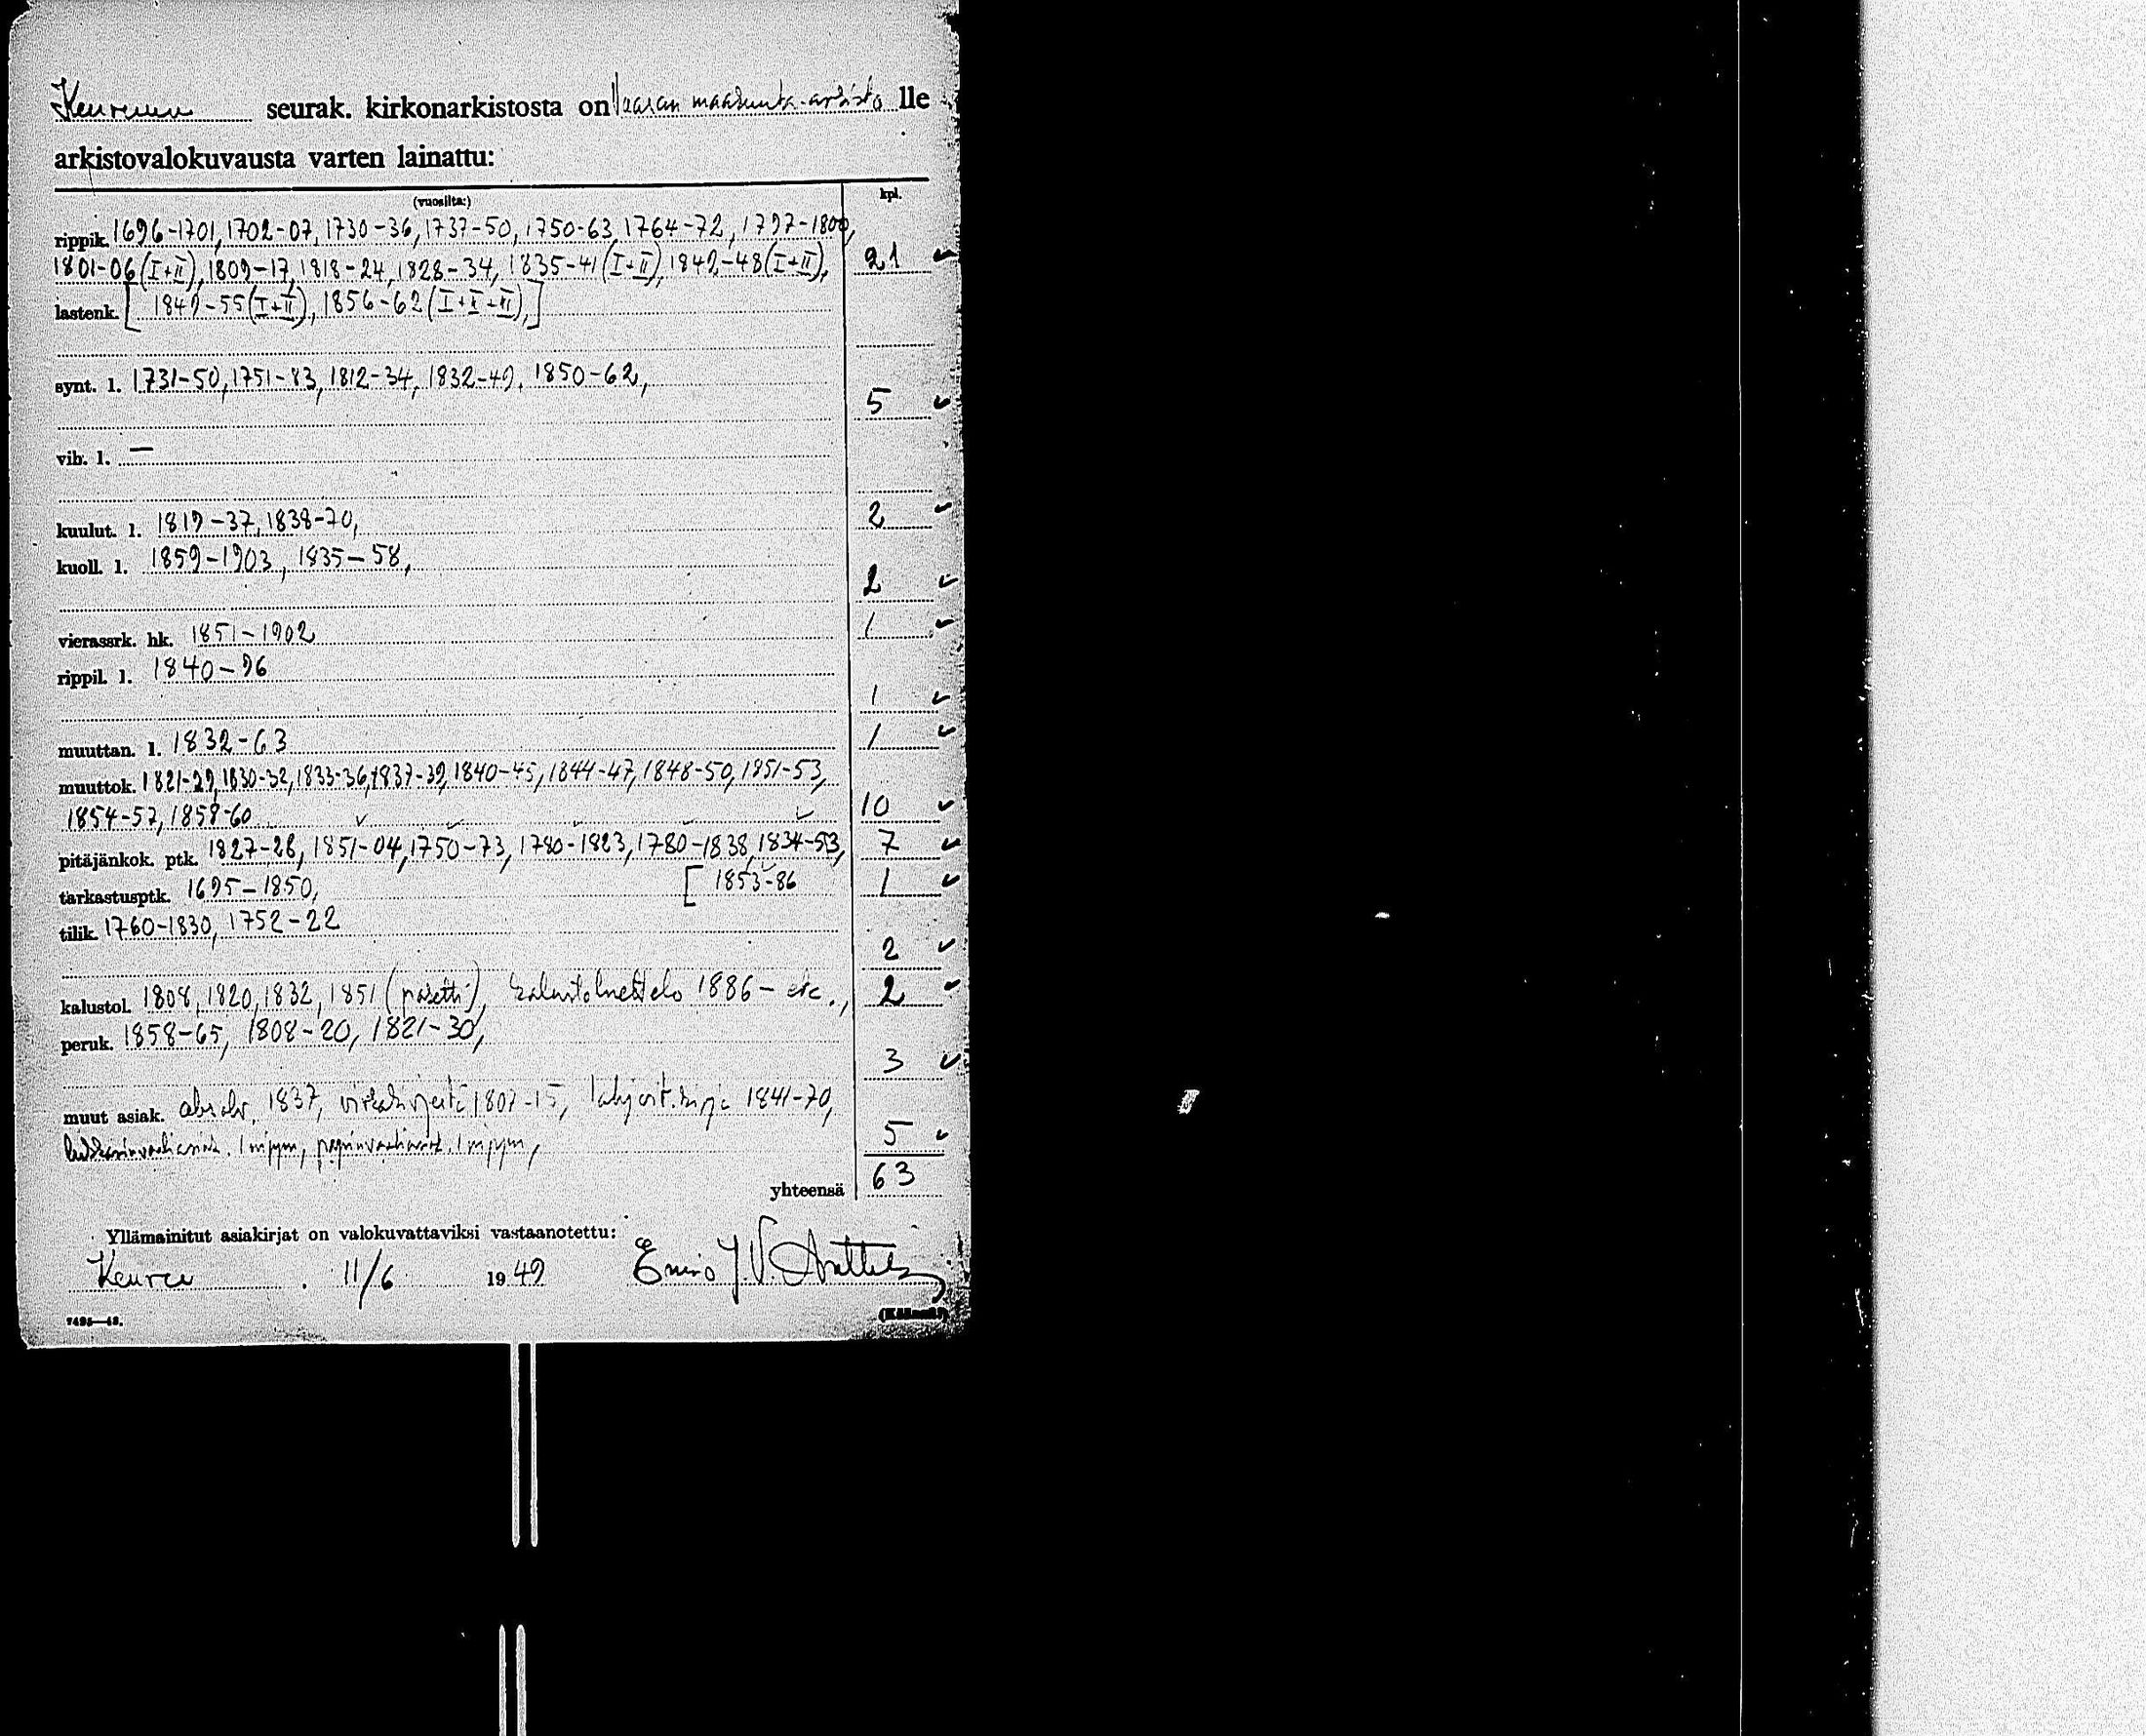 Keuruun seurak. kirkonarkistosta on Vaasan maakunta-arkisto lle
arkistovalokuvausta varten lainattu:
(vuosilta:) kpl.
rippik. 1696-1701, 1702-07, 1730-36, 1737-50, 1750-63, 1764-72, 1797-1800,
1801-06 (I+II), 1809-17, 1818-24, 1828-34, 1835-41 (I+II), 1842-48 (I+II), 21
lastenk. [1849-55 (I+II), 1856-62 (I+II+III),]
synt. l. 1731-50, 1751-83, 1812-34, 1832-49, 1850-62,
5
vih. l. —
kuulut. l. 1819-37, 1838-70, 2
kuoll. l. 1859-1903, 1835-58,
2
vierassrk. hk. 1851-1902 1
rippil. l. 1840-96
1
muuttan. l. 1832-63 1
muuttok. 1821-29, 1830-32, 1833-36, 1837-39, 1840-45, 1844-47, 1848-50, 1851-53,
1854-57, 1858-60 10
pitäjänkok. ptk. 1827-28, 1851-04, 1750-73, 1780-1823, 1780-1838, 1834-53, 7
tarkastusptk. 1695-1850, [1853-86 1
tilik. 1760-1830, 1752-22
2
kalustol. 1808, 1820, 1832, 1851 (pasetti), kalustoluettelo 1886- etc., 2
peruk. 1858-65, 1808-20, 1821-30,
3
muut asiak. 1837, virkakirjeitä 1807-15, lahjoit. kirja 1841-70,
5
yhteensä 63
Yllämainitut asiakirjat on valokuvattaviksi vastaanotettu:
Keuruu 11/6 1949 J. V.
7495—48. (Käännä!)